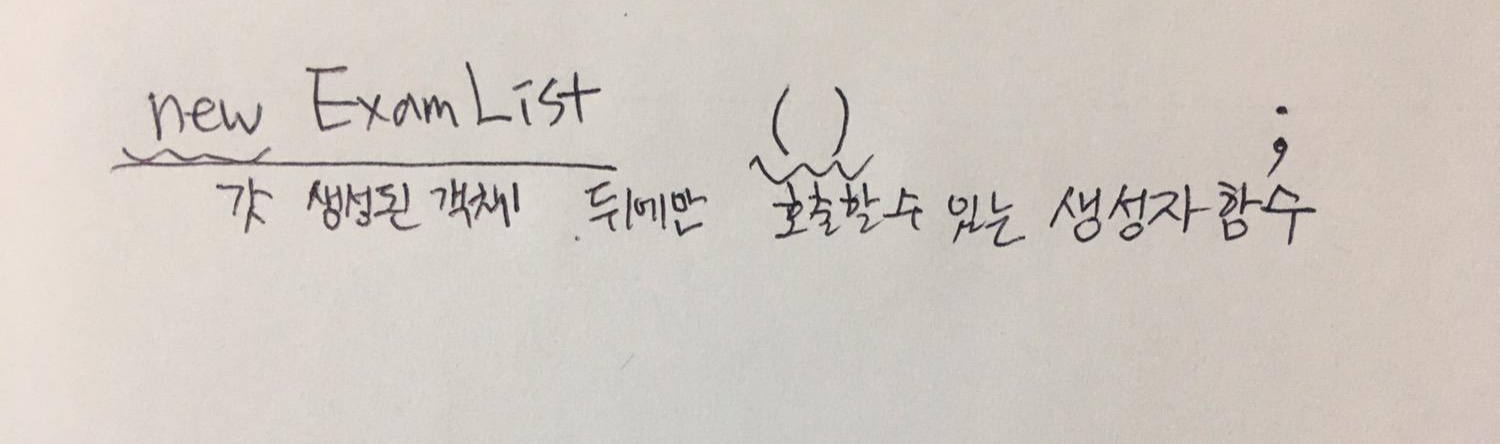 new ExamList ( ) ;
갓 생성된 객체 뒤에만 호출할 수 있는 생성자 함수